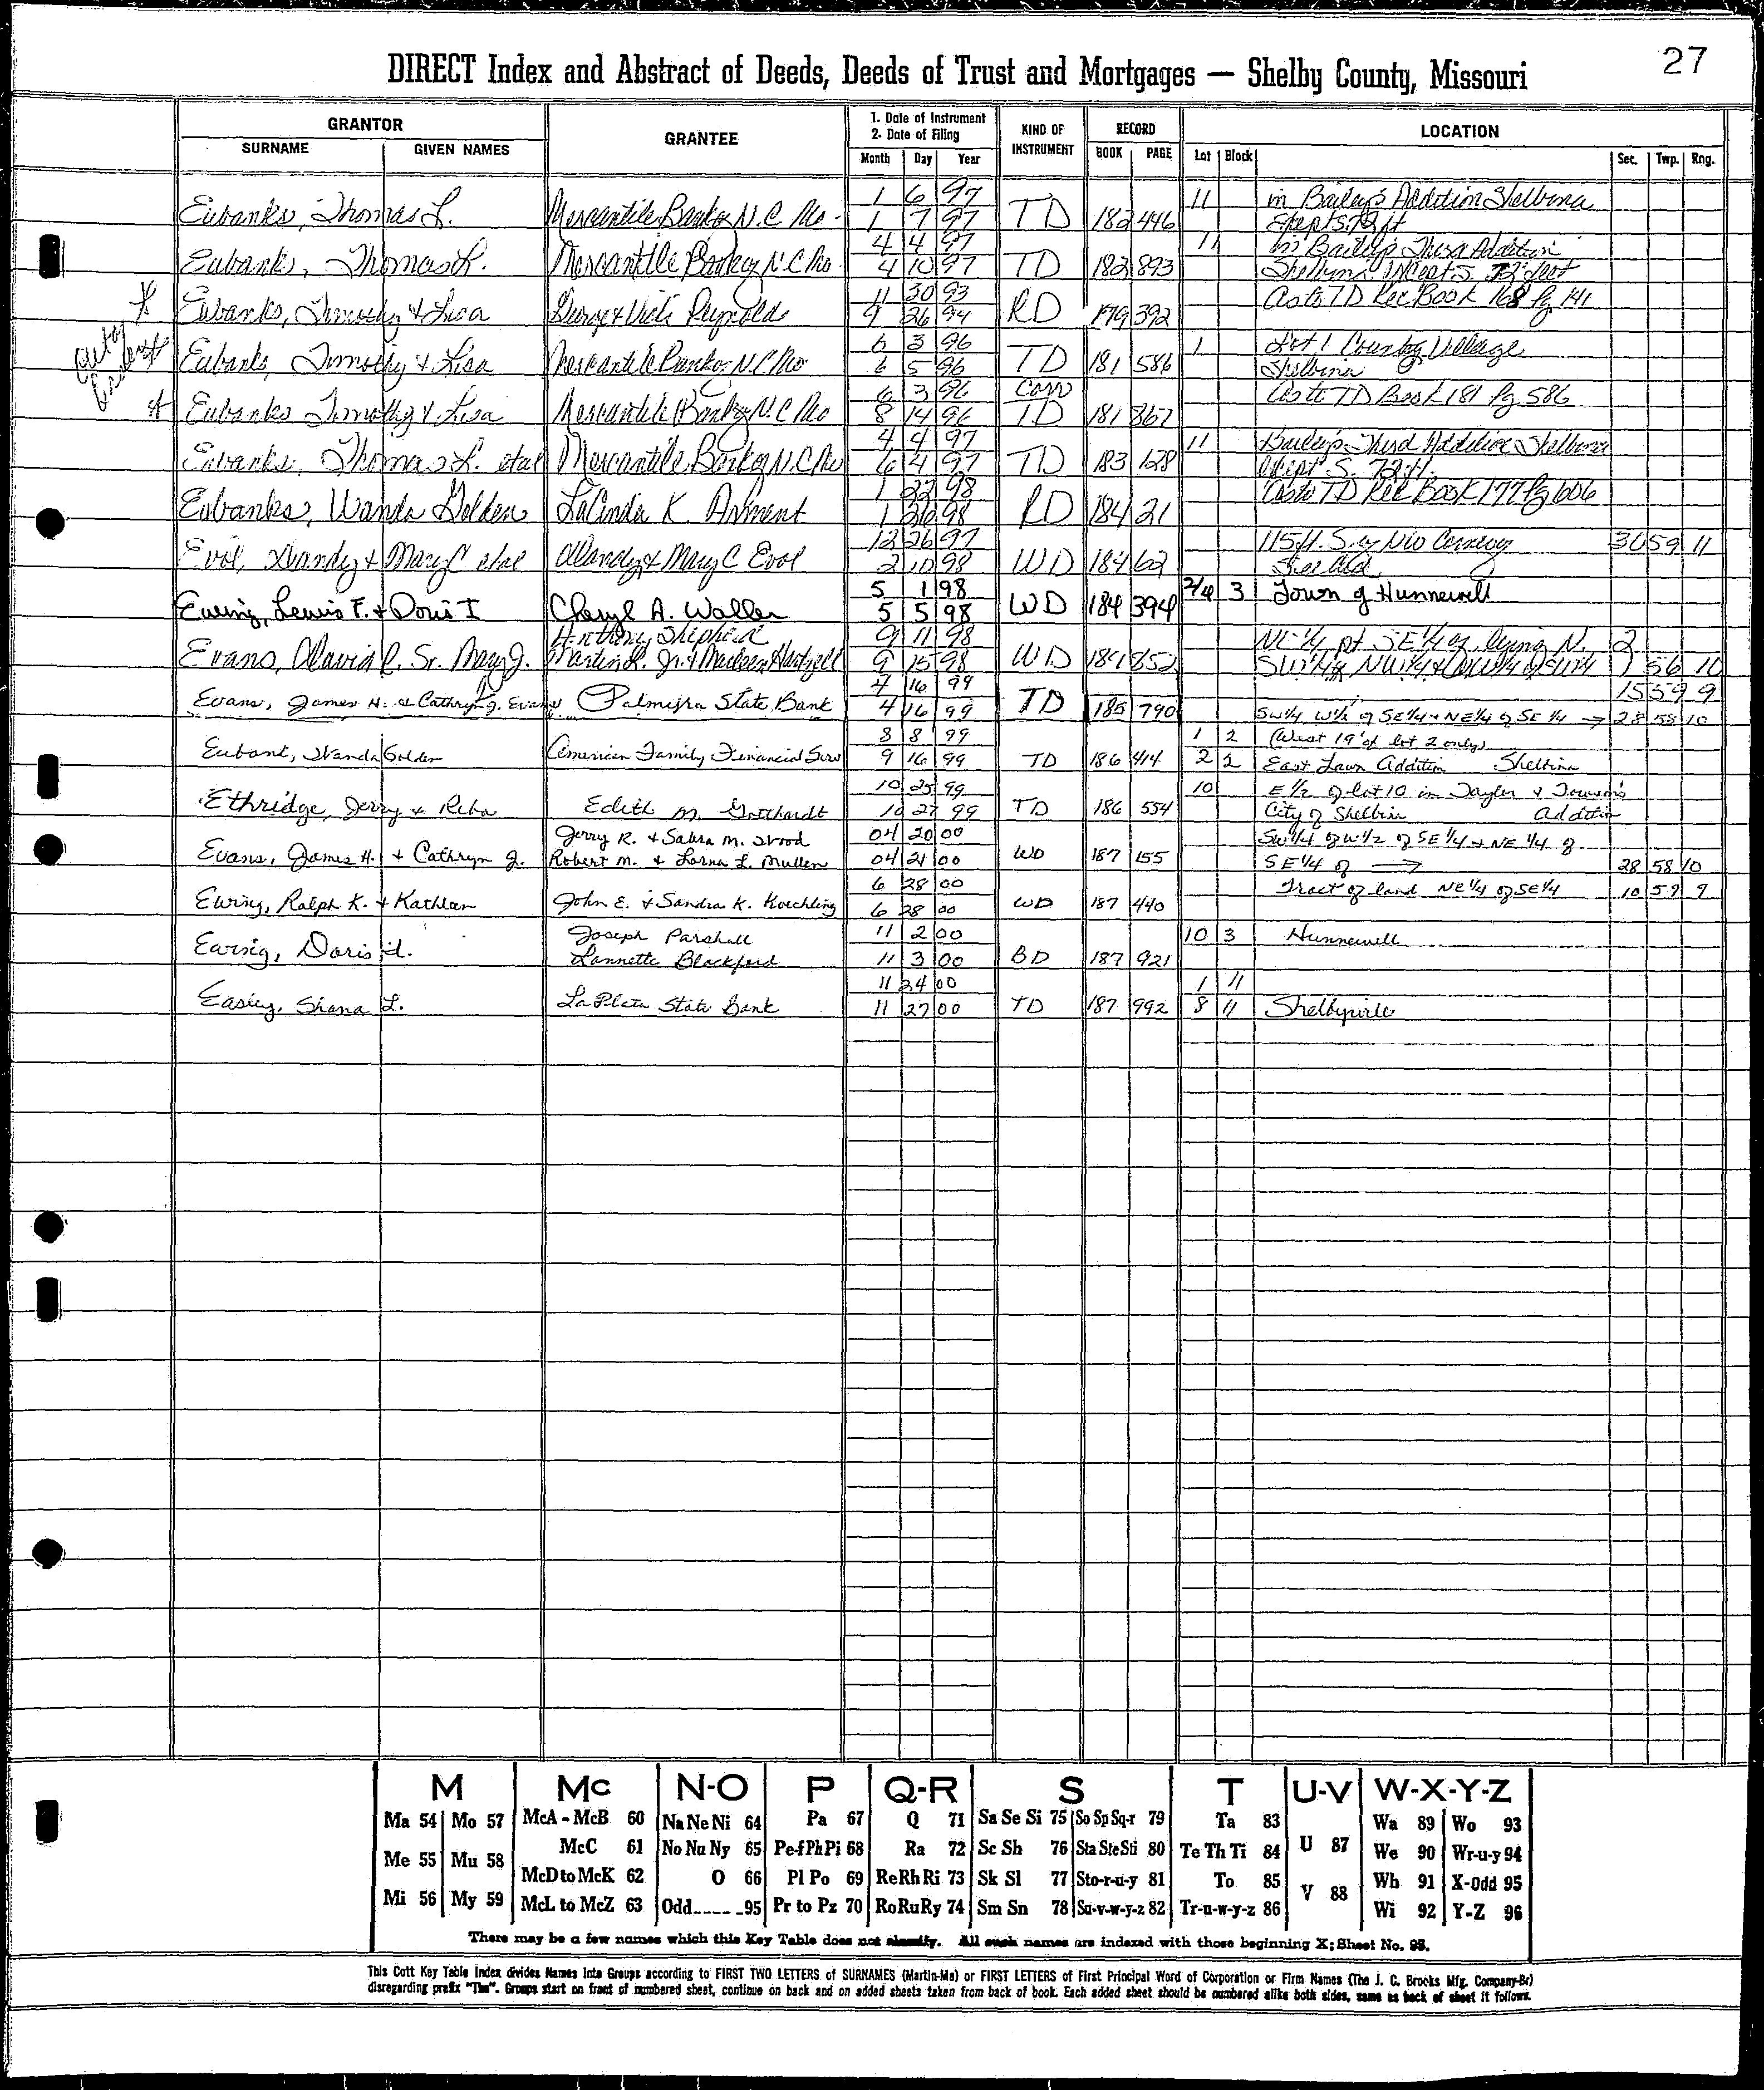 27
DIRECT Index and Abstract of Deeds, Deeds of Trust and Mortgages — Shelby County, Missouri
GRANTOR
SURNAME GIVEN NAMES
GRANTEE
1. Date of Instrument
2. Date of Filing
Month Day Year
KIND OF INSTRUMENT
RECORD
BOOK PAGE
LOCATION
Lot Block Sec. Twp. Rng.
1 6 97 11 in Bailey's Addition Shelbina
Eubanks, Thomas L. Mercantile Bank of N.C. Mo. 1 7 97 TD 182 446
4 4 97 11 in Bailey's Third Addition
Eubanks, Thomas L. Mercantile Bank of N.C. Mo. 4 10 97 TD 182 893 Shelbina
11 30 93 As to TD Rec Book 168 Pg 141
Eubanks, Timothy & Lisa George & Vicki Reynolds 9 26 94 RD 179 392
out of
6 3 96 1 Lot 1 Country Village
Eubanks, Timothy & Lisa Mercantile Bank of N.C. Mo 6 5 96 TD 181 586 Shelbina
6 3 96 Corr As to TD Book 181 Pg 586
Eubanks Timothy & Lisa Mercantile Bank of N.C. Mo 8 14 96 TD 181 867
4 4 97 11 Bailey's Third Addition Shelbina
Eubanks, Thomas L. etal Mercantile Bank of N.C. Mo 6 4 97 TD 183 128
1 22 98 As to TD Rec Book 177 Pg 606
Eubanks, Wanda Golden LaCinda K. Arment 1 26 98 RD 184 21
12 26 97 115 ft. S. of NW Corner 30 59 11
& Mary C etal & Mary C 2 10 98 WD 184 62
5 1 98 2/4 3 Town of Hunnewell
Ewing, Lewis F. & Doris I Cheryl A. Waller 5 5 98 WD 184 394
Anthony Shepherd 9 11 98 NE 1/4 pt SE 1/4 lying N. 2
Evans, David R. Sr. Mary J. 9 15 98 WD 184 852 1 56 10
4 16 99 15 59 9
Evans, James H. & Cathryn J. Evans Palmyra State Bank 4 16 99 TD 185 790 SW 1/4 W 1/2 of SE 1/4 & NE 1/4 of SE 1/4 → 28 58 10
8 8 99 1 2 (West 19' of lot 2 only)
Eubank, Wanda Golden American Family Financial Serv 9 16 99 TD 186 414 2 2 East Lawn Addition Shelbina
10 25 99 10 E 1/2 of lot 10 in Taylor &
Ethridge, Jerry & Reba Edith M. Gotthardt 10 27 99 TD 186 554 City of Shelbina Addition
Jerry R. & Sabra M. Wood 04 20 00 SW 1/4 of W 1/2 of SE 1/4 & NE 1/4 of
Evans, James H. & Cathryn J. Robert M. & Lorna L. Mullen 04 21 00 WD 187 155 SE 1/4 of → 28 58 10
6 28 00 Tract of land NE 1/4 of SE 1/4 10 59 9
Ewing, Ralph K. & Kathleen John E. & Sandra K. Koechling 6 28 00 WD 187 440
Joseph Parshall 11 2 00 10 3 Hunnewell
Ewing, Doris I. Lannette Blackford 11 3 00 BD 187 921
11 24 00 1 11
Easley, Shana L. La Plata State Bank 11 27 00 TD 187 992 8 11 Shelbyville
M Mc N-O P Q-R S T U-V W-X-Y-Z
Ma 54 Mo 57 McA - McB 60 Na Ne Ni 64 Pa 67 Q 71 Sa Se Si 75 So Sp Sq-r 79 Ta 83 Wa 89 Wo 93
Me 55 Mu 58 McC 61 No Nu Ny 65 Pe-f Ph Pi 68 Ra 72 Sc Sh 76 Sta Ste Sti 80 Te Th Ti 84 U 87 We 90 Wr-u-y 94
McD to McK 62 O 66 Pl Po 69 Re Rh Ri 73 Sk Sl 77 Sto-r-u-y 81 To 85 Wh 91 X-Odd 95
Mi 56 My 59 McL to McZ 63 Odd 95 Pr to Pz 70 Ro Ru Ry 74 Sm Sn 78 Su-v-w-y-z 82 Tr-u-w-y-z 86 V 88 Wi 92 Y-Z 96
There may be a few names which this Key Table does not classify. All such names are indexed with those beginning X; Sheet No. 95.
This Cott Key Table Index divides Names into Groups according to FIRST TWO LETTERS of SURNAMES (Martin-Ma) or FIRST LETTERS of First Principal Word of Corporation or Firm Names (The J. C. Brooks Mfg. Company-Br)
disregarding prefix "The". Groups start on front of numbered sheet, continue on back and on added sheets taken from back of book. Each added sheet should be numbered alike both sides, same as back of sheet it follows.